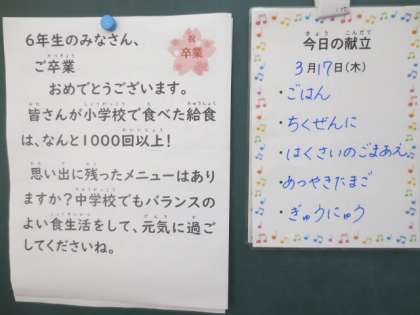 6年生のみなさん、
祝
卒業
ご卒業
おめでとうございます。
皆さんが小学校で食べた給食
は、なんと1000回以上！
思い出に残ったメニューはあり
ますか？中学校でもバランスの
よい食生活をして、元気に過ご
してくださいね。
今日の献立
3月17日(木)
・ごはん
・ちくぜんに
・はくさいのごまあえ
・あつやきたまご
・ぎゅうにゅう